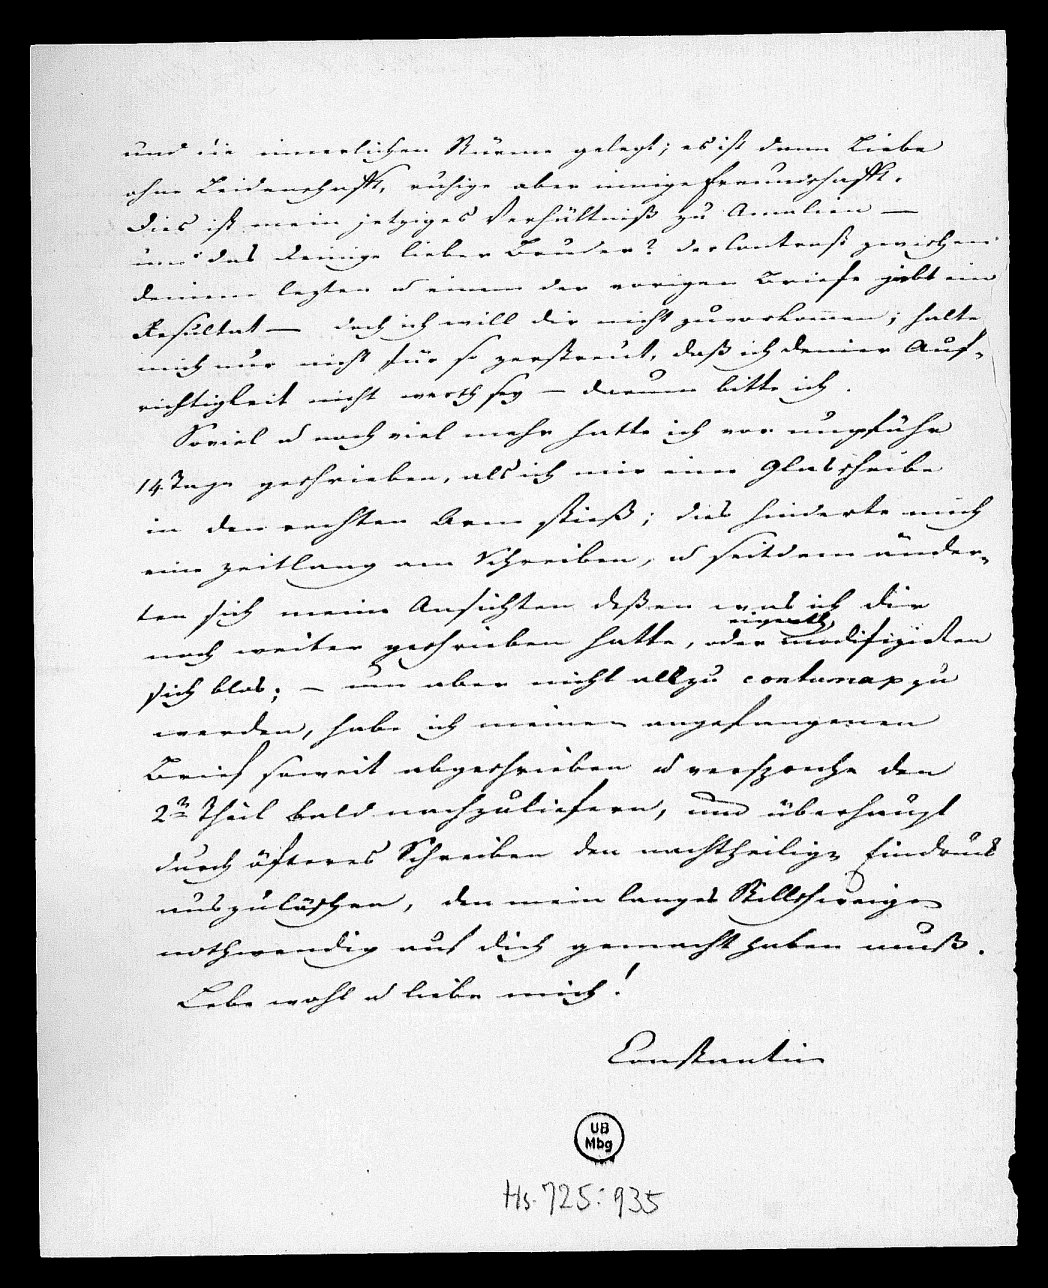 und die innerlichen Stürme gelegt; es ist dann Liebe
ohne Leidenschaft, ruhige aber innige Freundschaft.
Dies ist mein jetziges Verhältniß zu Amalien —
und das Deinige lieber Bruder? der Contrast zwischen
deinem lezten u einem der vorigen Briefe giebt ein
Resultat — doch ich will dir nicht zuvorkom̄en; halte
mich nur nicht für so zerstreut, daß ich deiner Auf-
richtigkeit nicht werth sey — darum bitte ich.
Soviel u noch viel mehr hatte ich vor ungefähr
14 Tage geschrieben, als ich mir eine Glasscheibe
in den rechten Arm stieß; dies hinderte mich
eine zeitlang am Schreiben, u seitdem änder-
ten sich meine Ansichten deßen was ich dir
noch weiter geschrieben hatte, oder eigentl. modifizirten
sich blos; — um aber nicht allzu contumax zu
werden, habe ich meinen angefangenen
Brief soweit abgeschrieben u verspreche den
2n Theil bald nachzuliefern, und überhaupt
durch öfteres Schreiben den nachtheiligen Eindruck
auszulöschen, den mein langes Stillschweigen
nothwendig auf dich gemacht haben muß.
Lebe wohl u liebe mich!
Constantin
UB
Mbg
Hs. 725:935